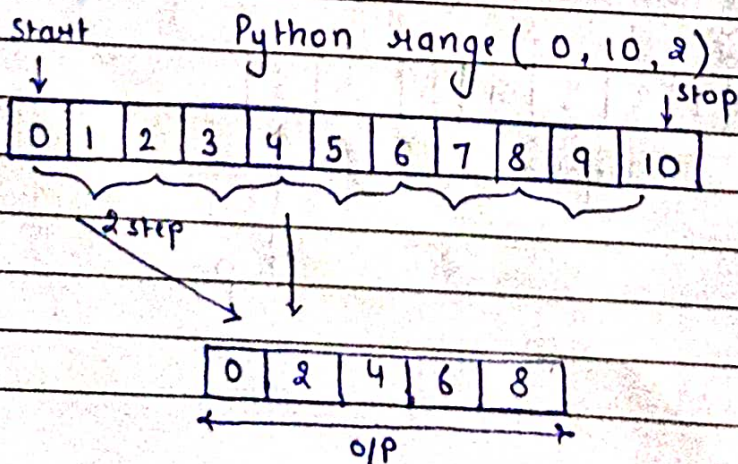 start
Python range( 0, 10, 2)
stop
0 1 2 3 4 5 6 7 8 9 10
2 step
0 2 4 6 8
O/P